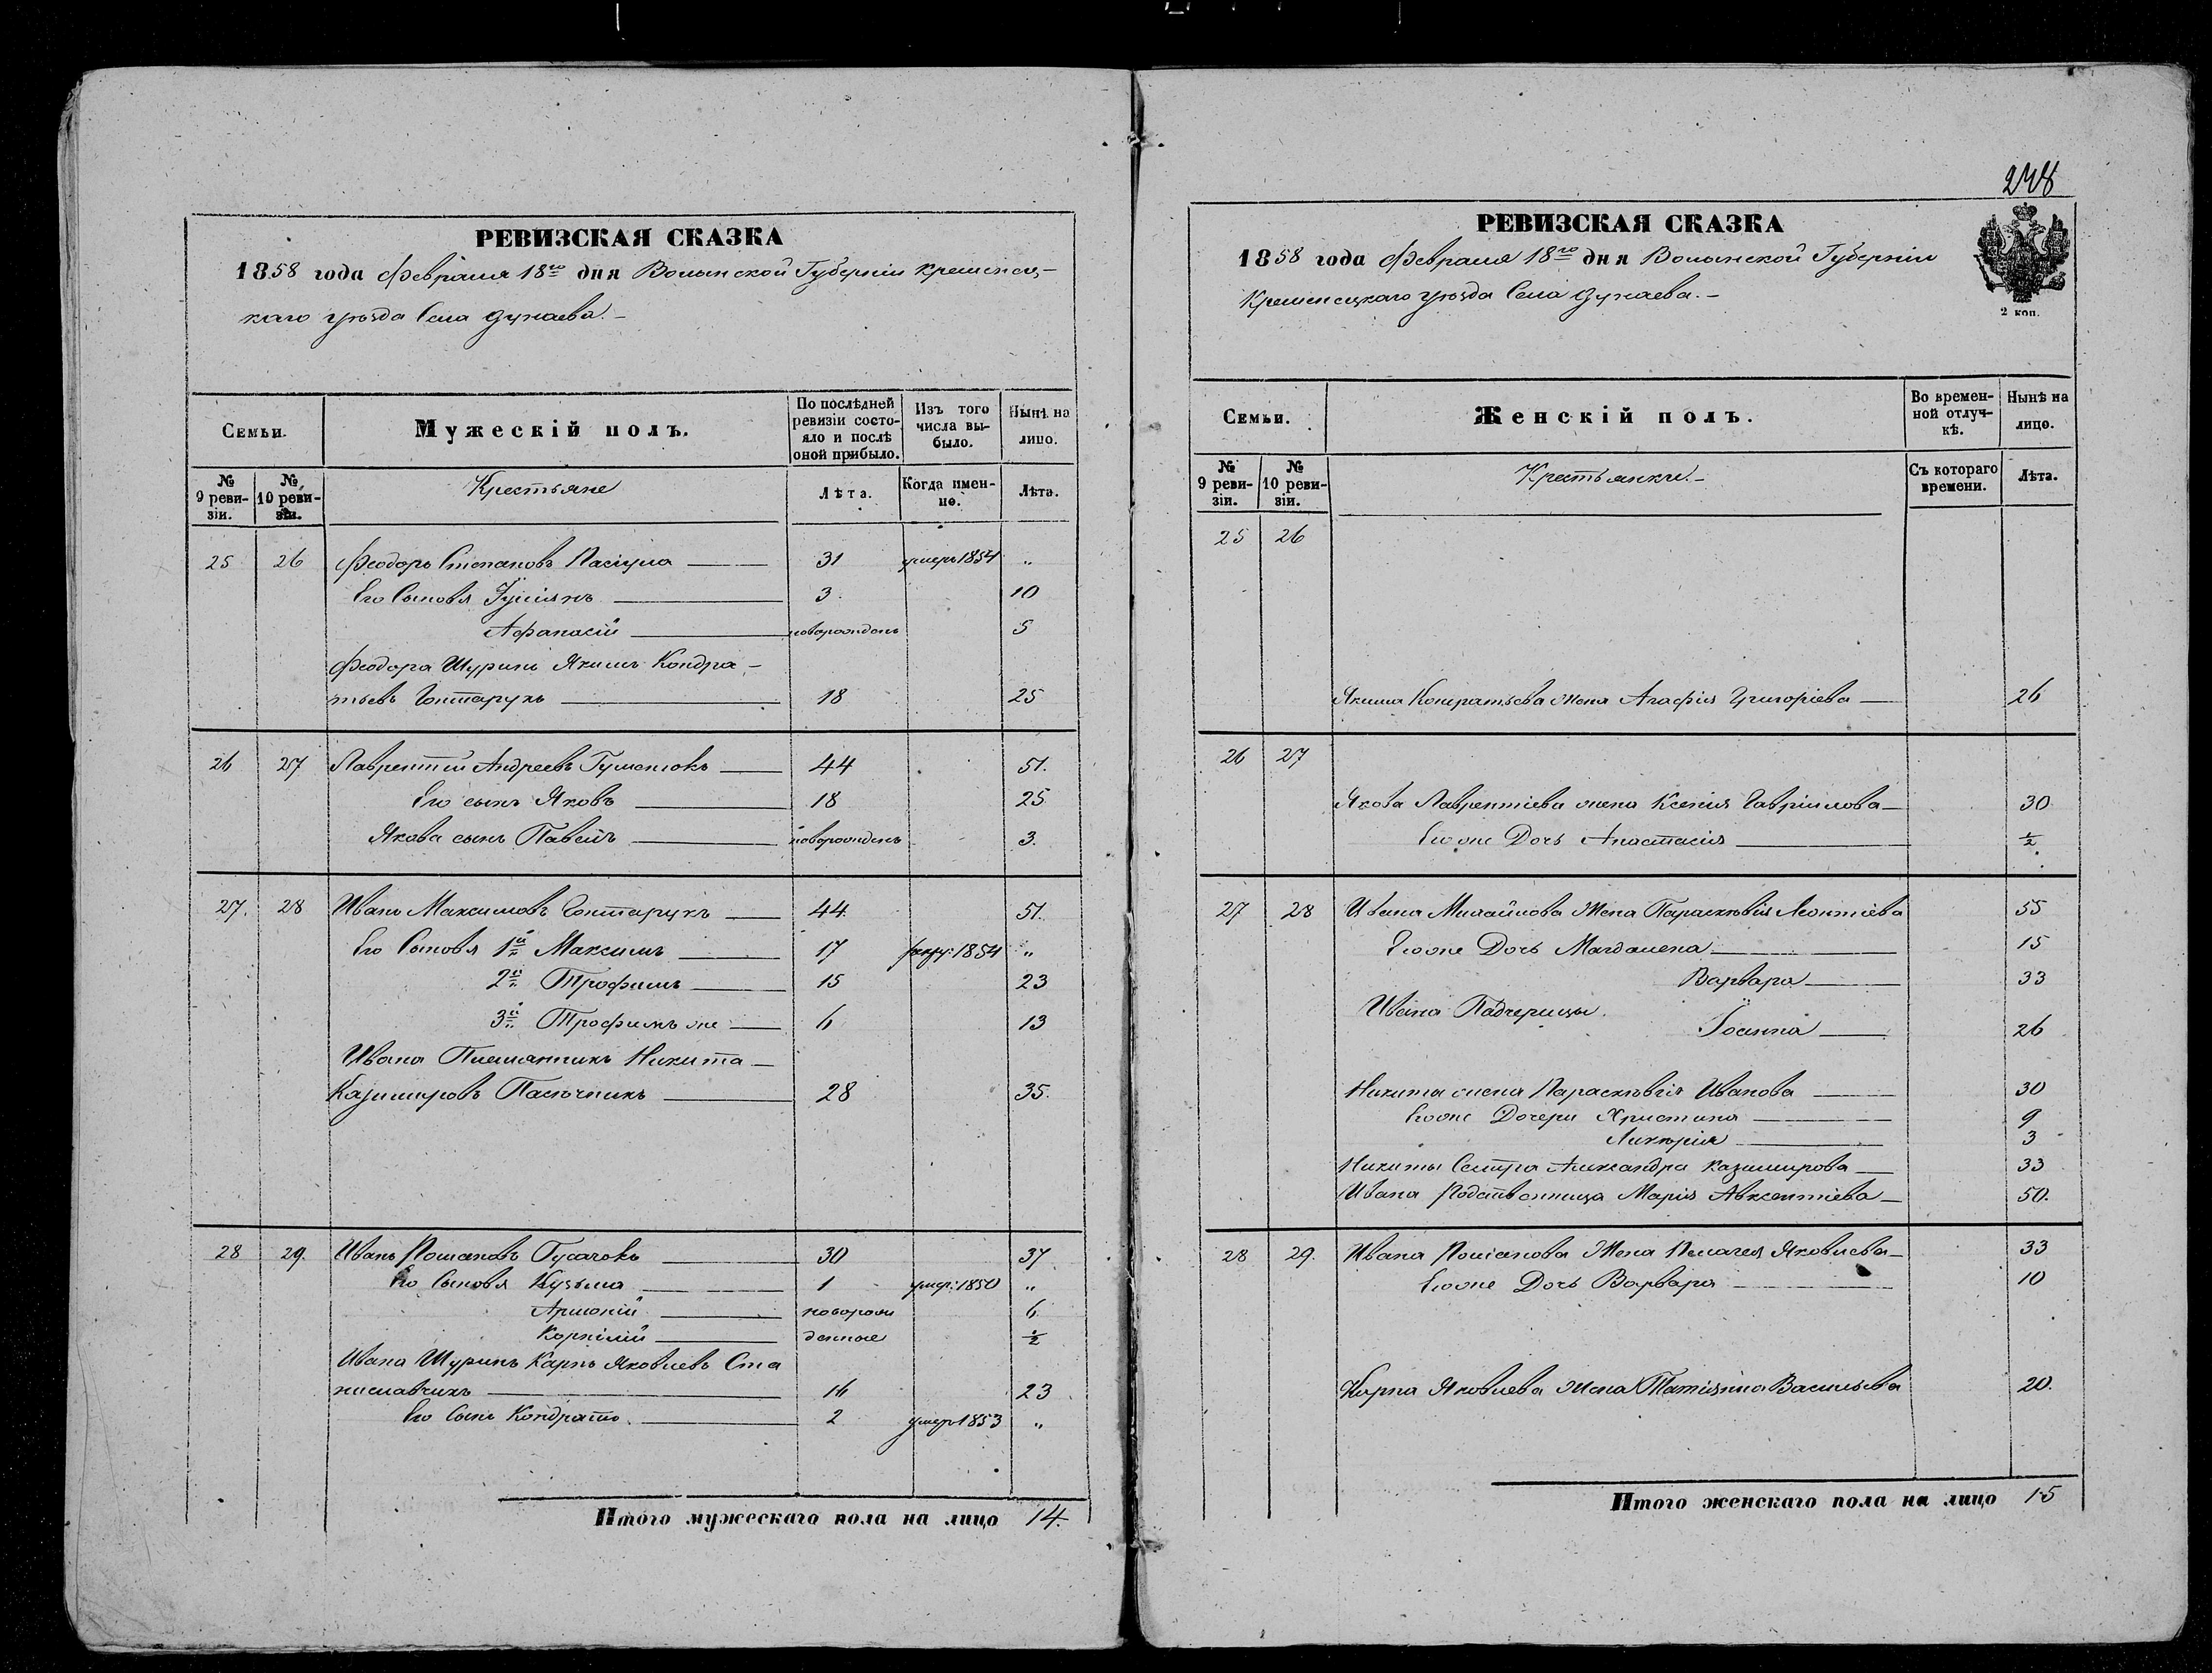 РЕВИЗСКАЯ СКАЗКА
1858 года Февраля 18го дня Волынской Губерніи Кременец-
каго уѣзда Села Дунаева.-
Семьи.
Мужескій полъ.
По послѣдней ревизіи состо-яло и послѣ оной прибыло.
Изъ того числа вы-было.
Нынѣ на лицо.
№ 9 реви-зіи.
№ 10 реви-зіи.
Крестьяне
Лѣта.
Когда имен-но.
Лѣта.
25 26 Феодоръ Степановъ Пасіука 31 умеръ 1854 "
Его Сыновья 3 10
Афанасій новорожденъ 5
Феодора Шуринъ Якимъ Кондра-
тьевъ Гонтарукъ 18 25
26 27 Лаврентій Андреевъ Гуменюкъ 44 51.
Его сынъ Яковъ 18 25
Якова сынъ Павелъ новорожденъ 3.
27. 28 Иванъ Максимовъ Гонтарукъ 44 51.
Его Сыновья 1й Максимъ 17 рекру: 1854 "
2й Трофимъ 15 23
3й Трофимъ же 6 13
Ивана Племянникъ Никита
Казимировъ Пасечникъ 28 35.
28 29. Иванъ Романовъ Гусачокъ 30 37
Его Сыновья Кузьма 1 умер: 1850 "
новорож 6
Корнилій денные ½
Ивана Шуринъ Карпъ Яковлевъ Ста
ниславчикъ 16 23
Его Сынъ Кондратъ. 2 умеръ 1853 "
Итого мужескаго пола на лицо 14.
248
РЕВИЗСКАЯ СКАЗКА
1858 года Февраля 18го дня Волынской Губерніи
Кременецкаго уѣзда Села Дунаева.-
2 коп.
Семьи.
Женскій полъ.
Во времен-ной отлуч-кѣ.
Нынѣ на лицо.
№ 9 реви-зіи.
№ 10 реви-зіи.
Крестьянки.-
Съ котораго времени.
Лѣта.
25 26
Якима Кондратьева Жена Агафія Григоріева 26
26 27
Якова Лаврентіева жена Ксенія Гавріилова 30
Его же Дочь Анастасія ½
27 28 Ивана Михайлова Жена Параскевія Леонтіева 55
Его же Дочь Магдалена 15
Варвара 33
Ивана Падчерицы.
Іоанна 26
Никиты жена Параскевія Иванова 30
Его же Дочери Христина 9
Ликерія 3
Никиты Сестра Александра Казимирова 33
Ивана Родственница Марія Авксентіева 50.
28 29. Ивана Романова Жена Пелагея Яковлева 33
Его же Дочь Варвара 10
Карпа Яковлева Жена Татіанна Васильева 20.
Итого женскаго пола на лицо 15